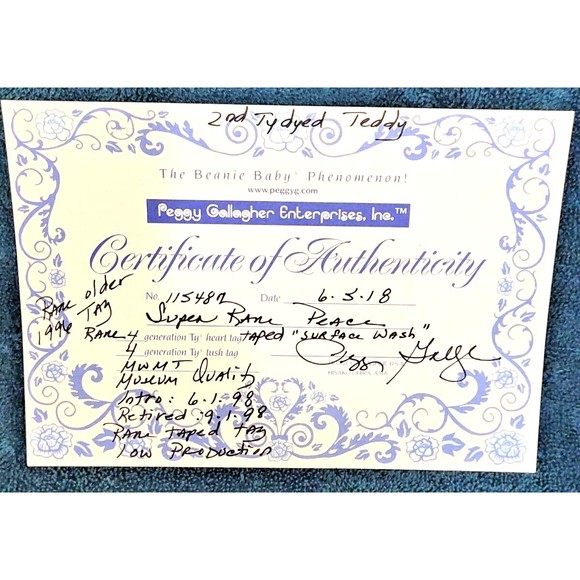 2nd Tydyed Teddy
The Beanie Baby® Phenomenon!
www.peggyg.com
Peggy Gallagher Enterprises, Inc.™
Certificate of Authenticity
No. 115487 Date 6-5-18
Rare older
1996 Tag
Super Rare Peace
Rare 4 generation Ty® heart tag taped "surface wash"
4 generation Ty® tush tag
MWMT
Museum Quality
Intro: 6-1-98
Retired: 9-1-98
Rare Taped Tag
Low Production